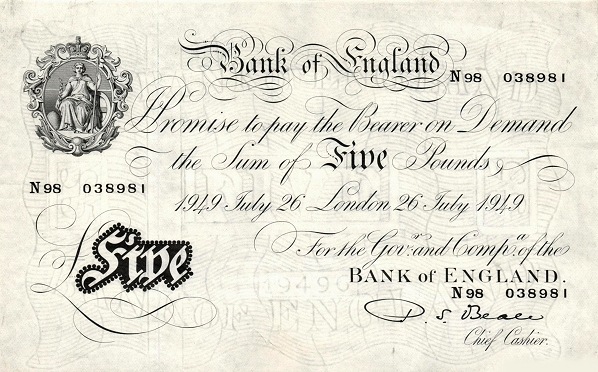 Bank of England
N98 038981
I Promise to pay the Bearer on Demand
the Sum of Five Pounds
N98 038981
1949 July 26 London 26 July 1949
For the Govr. and Compa. of the
BANK of ENGLAND.
N98 038981
£ Five
P. S. Beale
Chief Cashier.